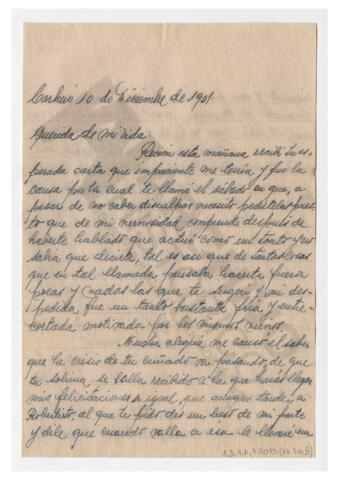 Carhué 10 de Diciembre de 1951.
Querida de mi vida:
Recien esta mañana recibí tu es-
perada carta que impaciente me tenia y fué la
causa por la cual te llamé el sábado en que, a
pesar de no caber disculpas necesito pedirtelas pues-
to que de mi nerviosidad comprendí después de
haberte hablado que actué como un tonto y no
sabia que decirte, tal es asi que de tantas cosas
que en tal llamada pensaba hacerte fueron
pocas y nadas las que te sugerí y mi des-
pedida fue un tanto bastante fria y entre-
cortada motivada por los mismos nervios.
Mucha alegria me causó el saber
que la crisis de tu cuñado va pasando, de que
tu sobrina se halla recibido a la que harás llegar
mis felicitaciones e igual, que aunque tarde, a
Robertito, al que te pido des un beso de mi parte
y dile que cuando valla a esa le llevaré un